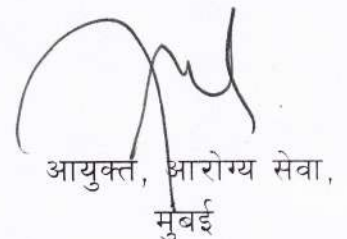 आयुक्त, आरोग्य सेवा,
मुंबई